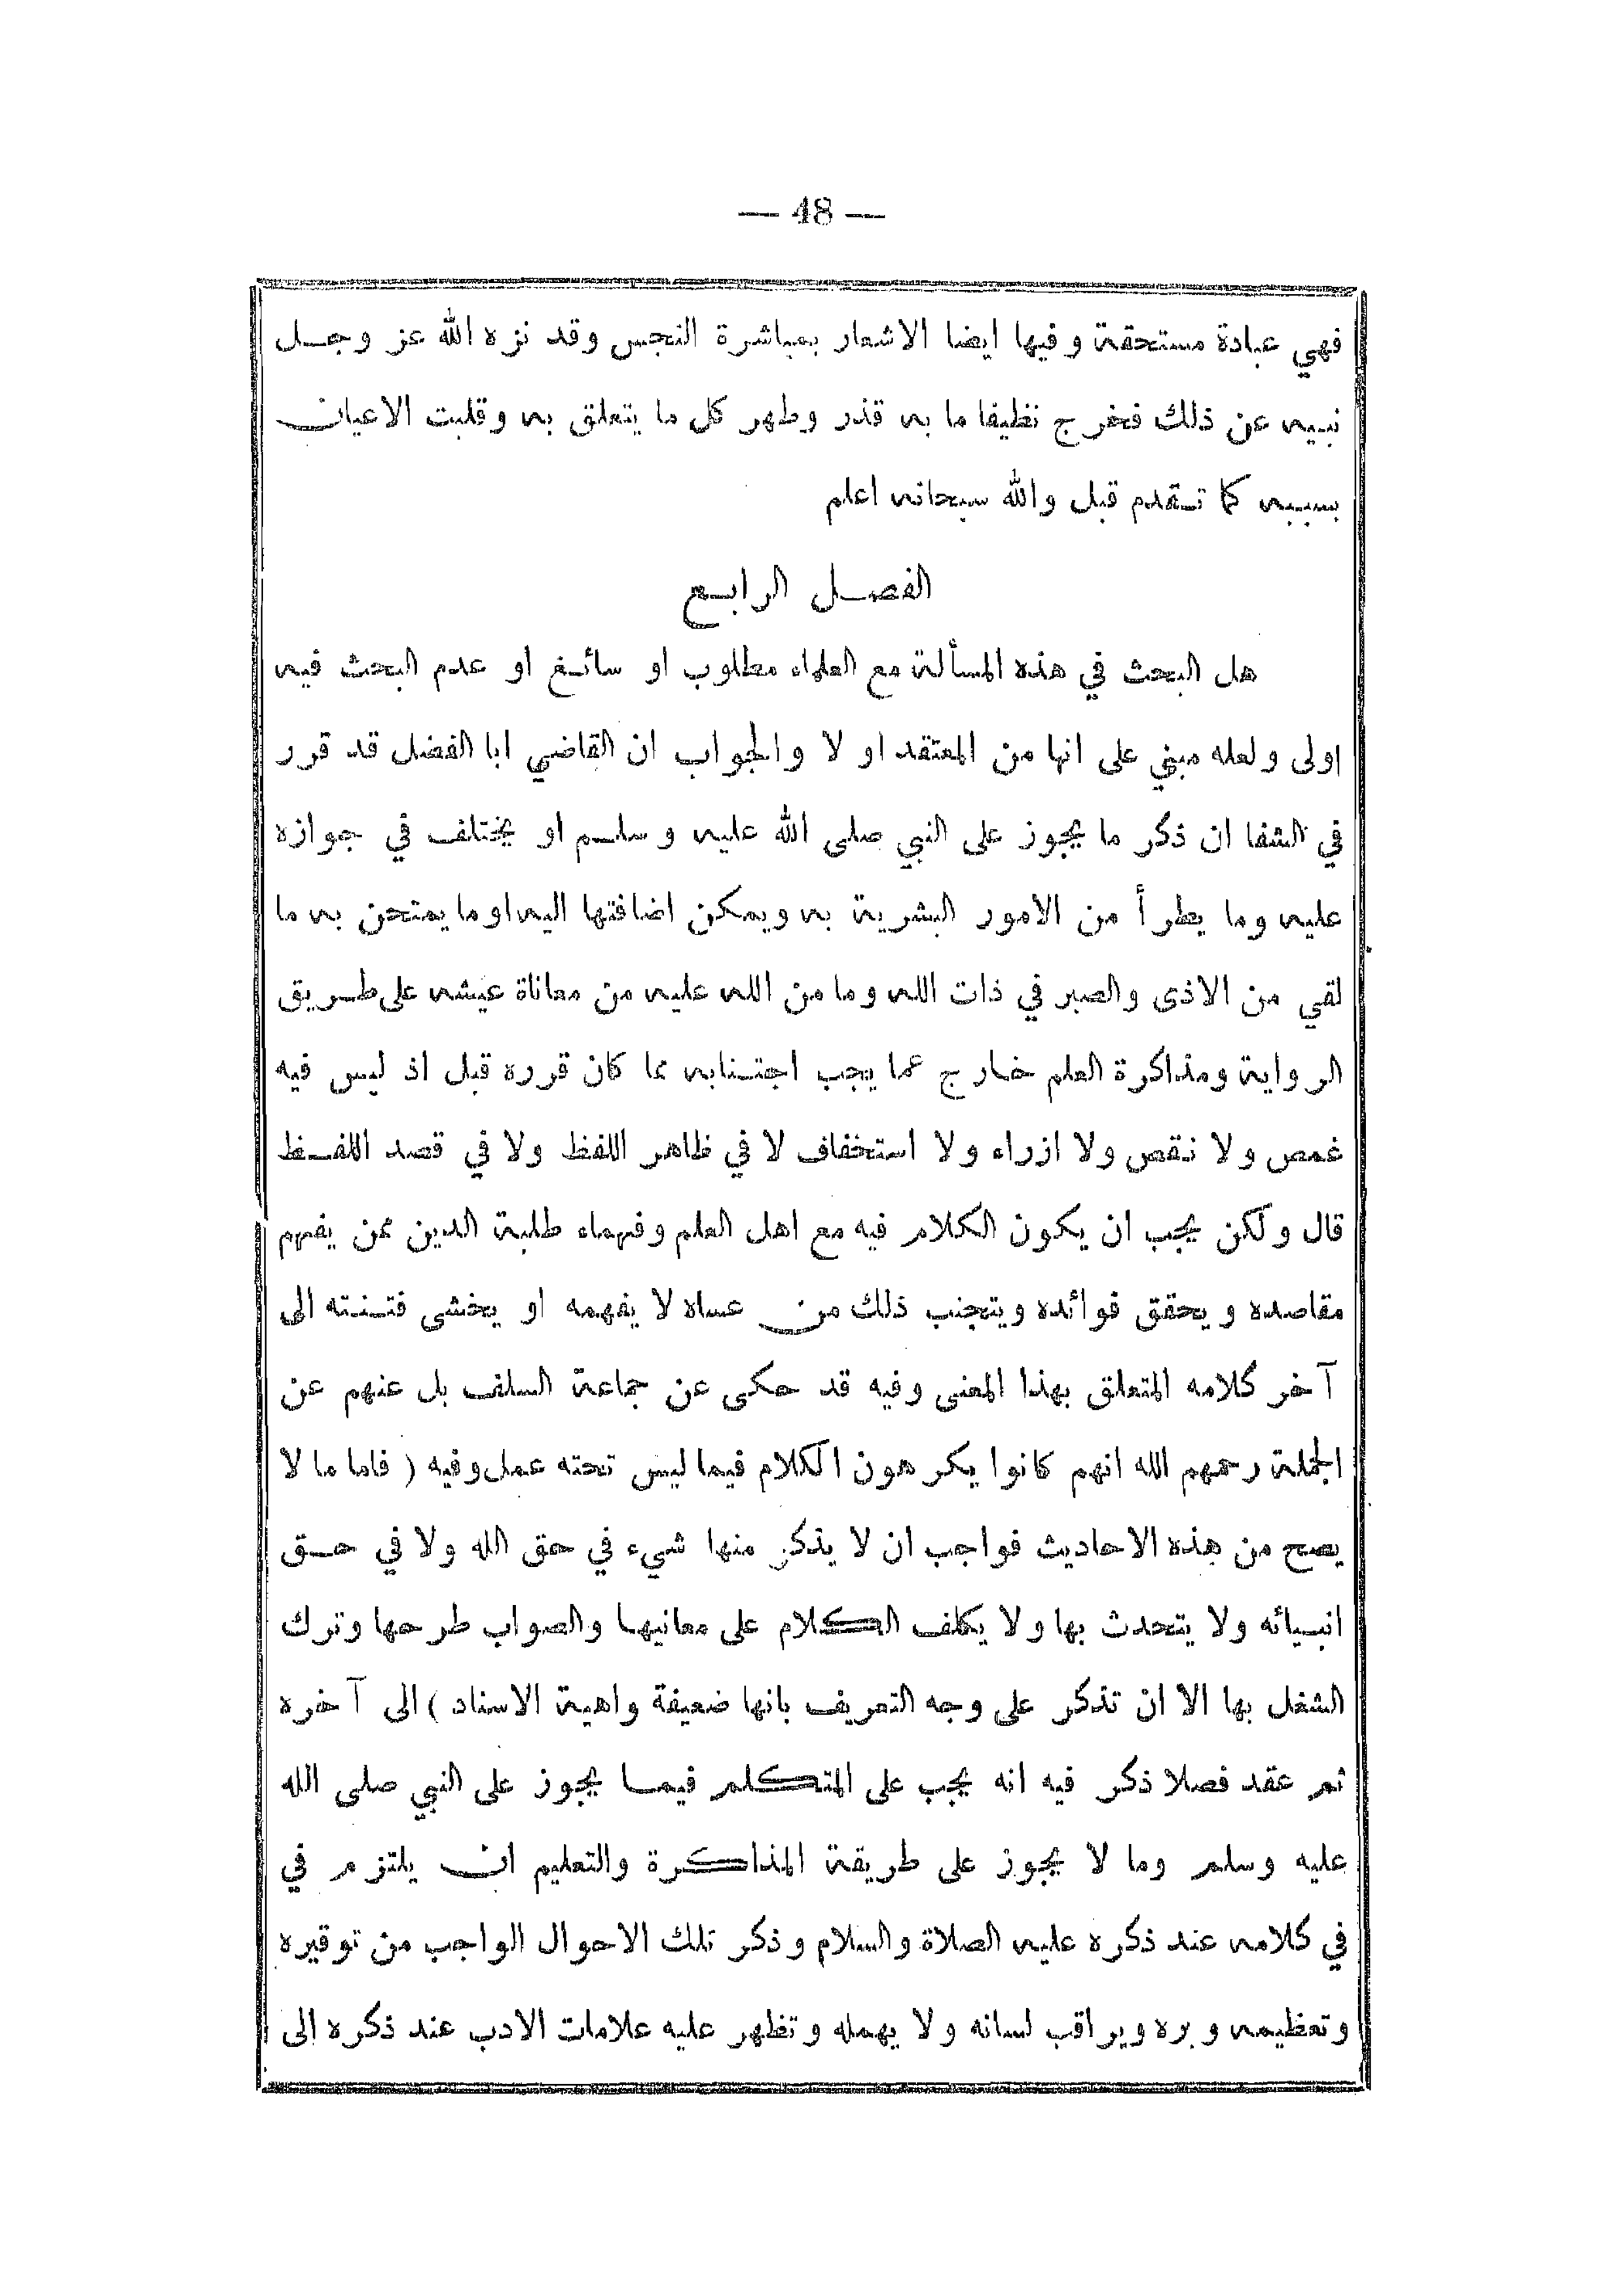 — 48 —
فهي عبادة مستحقة وفيها ايضا الاشعار بمباشرة النجس وقد نزه الله عز وجل
نبيه عن ذلك فخرج نظيفا ما به قذر وطهر كل ما يتعلق به وقلبت الاعيان
بسببه كما تقدم قبل والله سبحانه اعلم
الفصل الرابع
هل البحث في هذه المسألة مع العلماء مطلوب او سائغ او عدم البحث فيه
اولى ولعله مبني على انها من المعتقد او لا والجواب ان القاضي ابا الفضل قد قرر
في الشفا ان ذكر ما يجوز على النبي صلى الله عليه وسلم او يختلف في جوازه
عليه وما يطرأ من الامور البشرية به ويمكن اضافتها اليه او ما يمتحن به ما
لقي من الاذى والصبر في ذات الله وما من الله عليه من معاناة عيشه على طريق
الرواية ومذاكرة العلم خارج عما يجب اجتنابه مما كان قرره قبل اذ ليس فيه
غمص ولا نقص ولا ازراء ولا استخفاف لا في ظاهر اللفظ ولا في قصد اللفظ
قال ولكن يجب ان يكون الكلام فيه مع اهل العلم وفهماء طلبة الدين ممن يفهم
مقاصده ويحقق فوائده ويتجنب ذلك من عساه لا يفهمه او يخشى فتنته الى
آخر كلامه المتعلق بهذا المعنى وفيه قد حكى عن جماعة السلف بل عنهم عن
الجملة رحمهم الله انهم كانوا يكرهون الكلام فيما ليس تحته عمل وفيه ( فاما ما لا
يصح من هذه الاحاديث فواجب ان لا يذكر منها شيء في حق الله ولا في حق
انبيائه ولا يتحدث بها ولا يكلف الكلام على معانيها والصواب طرحها وترك
الشغل بها الا ان تذكر على وجه التعريف بانها ضعيفة واهية الاسناد ) الى آخره
ثم عقد فصلا ذكر فيه انه يجب على المتكلم فيما يجوز على النبي صلى الله
عليه وسلم وما لا يجوز على طريقة المذاكرة والتعليم ان يلتزم في
في كلامه عند ذكره عليه الصلاة والسلام وذكر تلك الاحوال الواجب من توقيره
وتعظيمه وبره ويراقب لسانه ولا يهمله وتظهر عليه علامات الادب عند ذكره الى